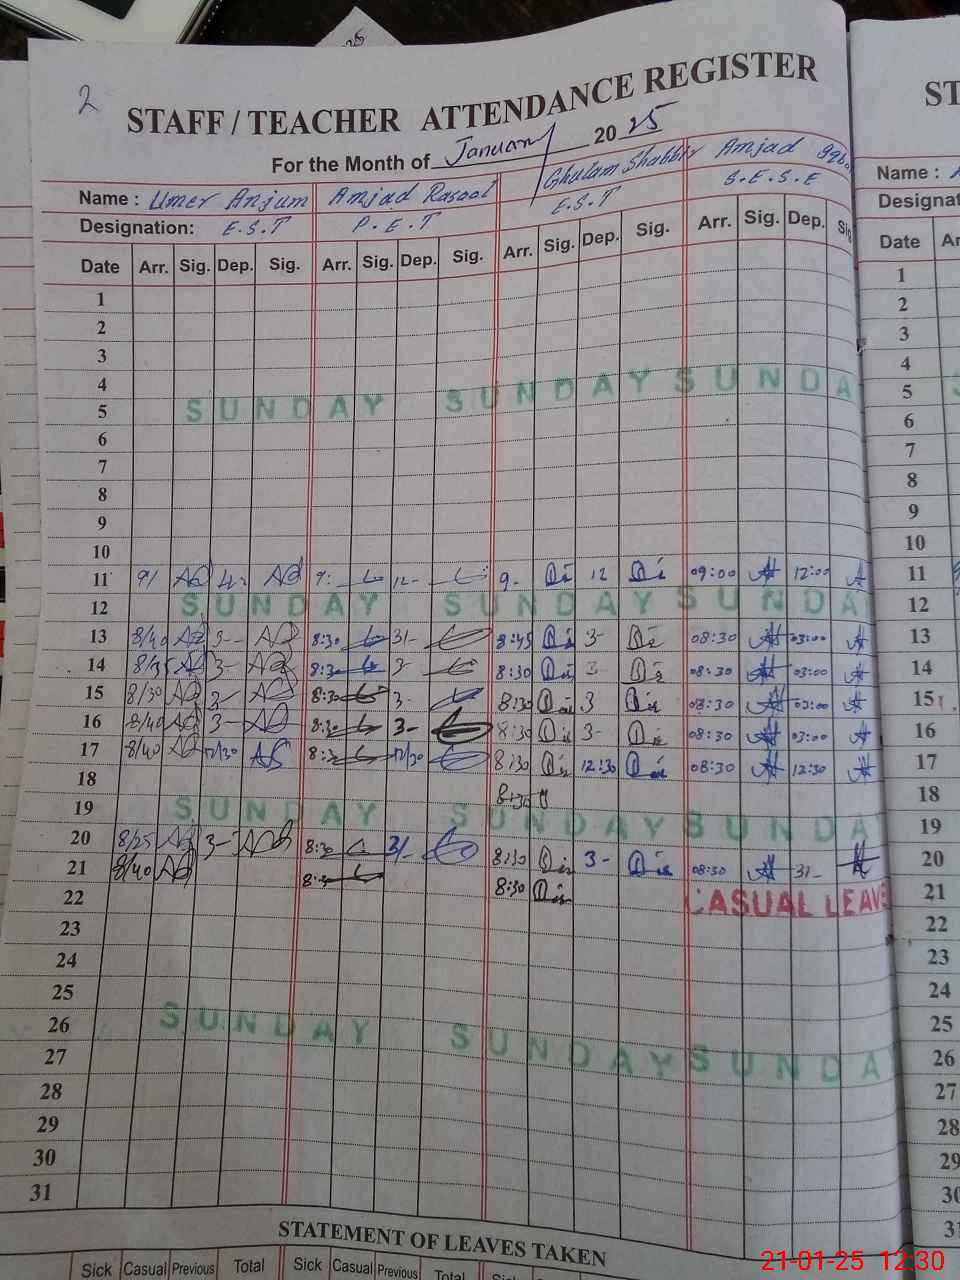 2
STAFF / TEACHER ATTENDANCE REGISTER
For the Month of January 2025
Name : Umer Anjum Amjad Rasool Ghulam Shabbir Amjad
Designation: E.S.T P.E.T E.S.T S.E.S.E
Date Arr. Sig. Dep. Sig. Arr. Sig. Dep. Sig. Arr. Sig. Dep. Sig. Arr. Sig. Dep. Sig
1
2
3
4
5 SUNDAY SUNDAY SUNDA
6
7
8
9
10
11 9/ 9: 12- 9- 12 09:00 12:00
12 SUNDAY SUNDAY SUNDA
13 8/40 3- 8:30 3/- 8:45 3- 08:30 03:00
14 8/35 3- 8:30 3- 8:30 3 08:30 03:00
15 8/30 3- 8:30 3- 8:30 3 08:30 03:00
16 8/40 3- 8:30 3- 8:30 3- 08:30 03:00
17 8/40 12/30 8:30 12/30 8:30 12:30 08:30 12:30
18 8:30
19 SUNDAY SUNDAY SUNDA
20 8/25 3- 8:30 3/- 8:30 3- 08:30 3/-
21 8/40 8:30 8:30 CASUAL LEAVE
22
23
24
25
26 SUNDAY SUNDAY SUNDA
27
28
29
30
31
STATEMENT OF LEAVES TAKEN
Sick Casual Previous Total Sick Casual Previous Total Sick
ST
Name :
Designat
Date Ar
1
2
3
4
5 S
6
7
8
9
10
11
12
13
14
15
16
17
18
19
20
21
22
23
24
25
26
27
28
29
30
31
21-01-25 12:30